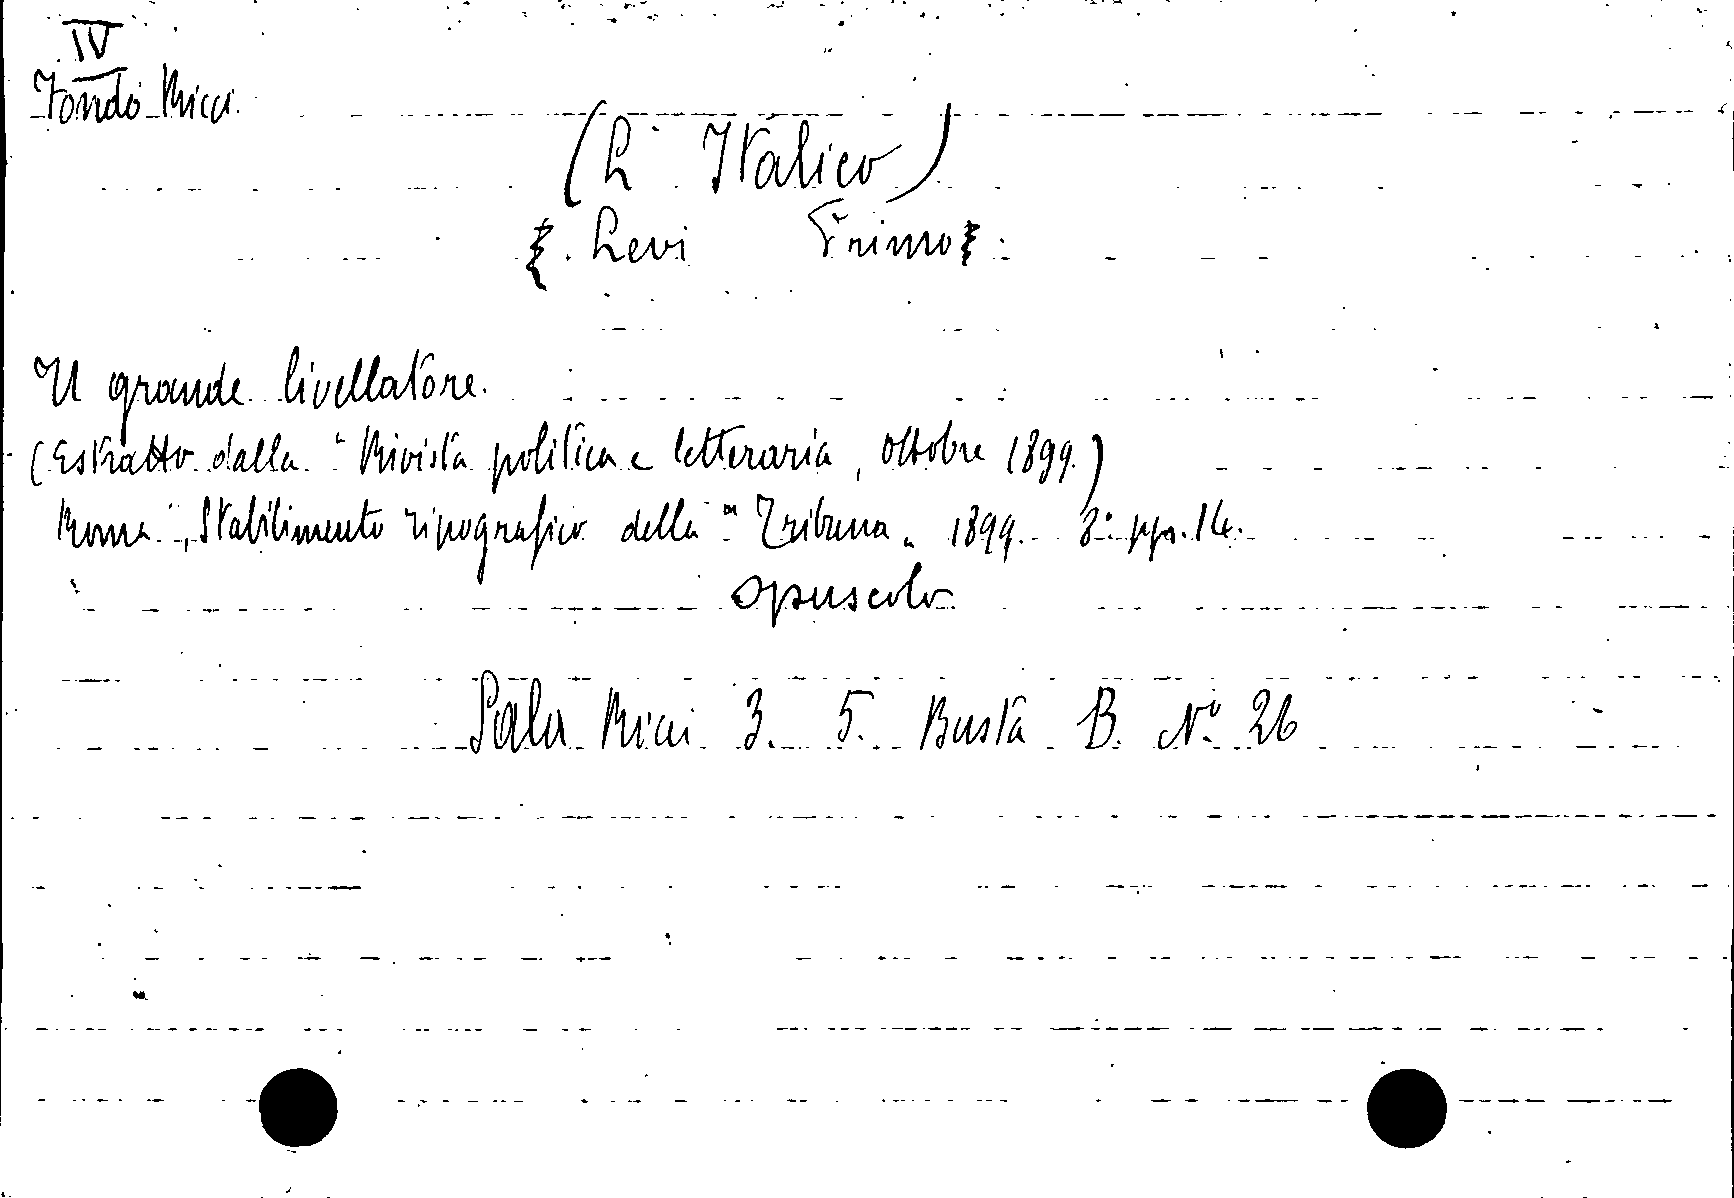 IV
Fondo Ricci
(L'Italico)
Levi Primo
Il grande livellatore.
(Estratto dalla "Rivista politica e letteraria, ottobre 1899.)
Roma, Stabilimento tipografico della "Tribuna" 1899. 8° pp. 14.
opuscolo
Sala Ricci 3. 5. Busta B. N° 26